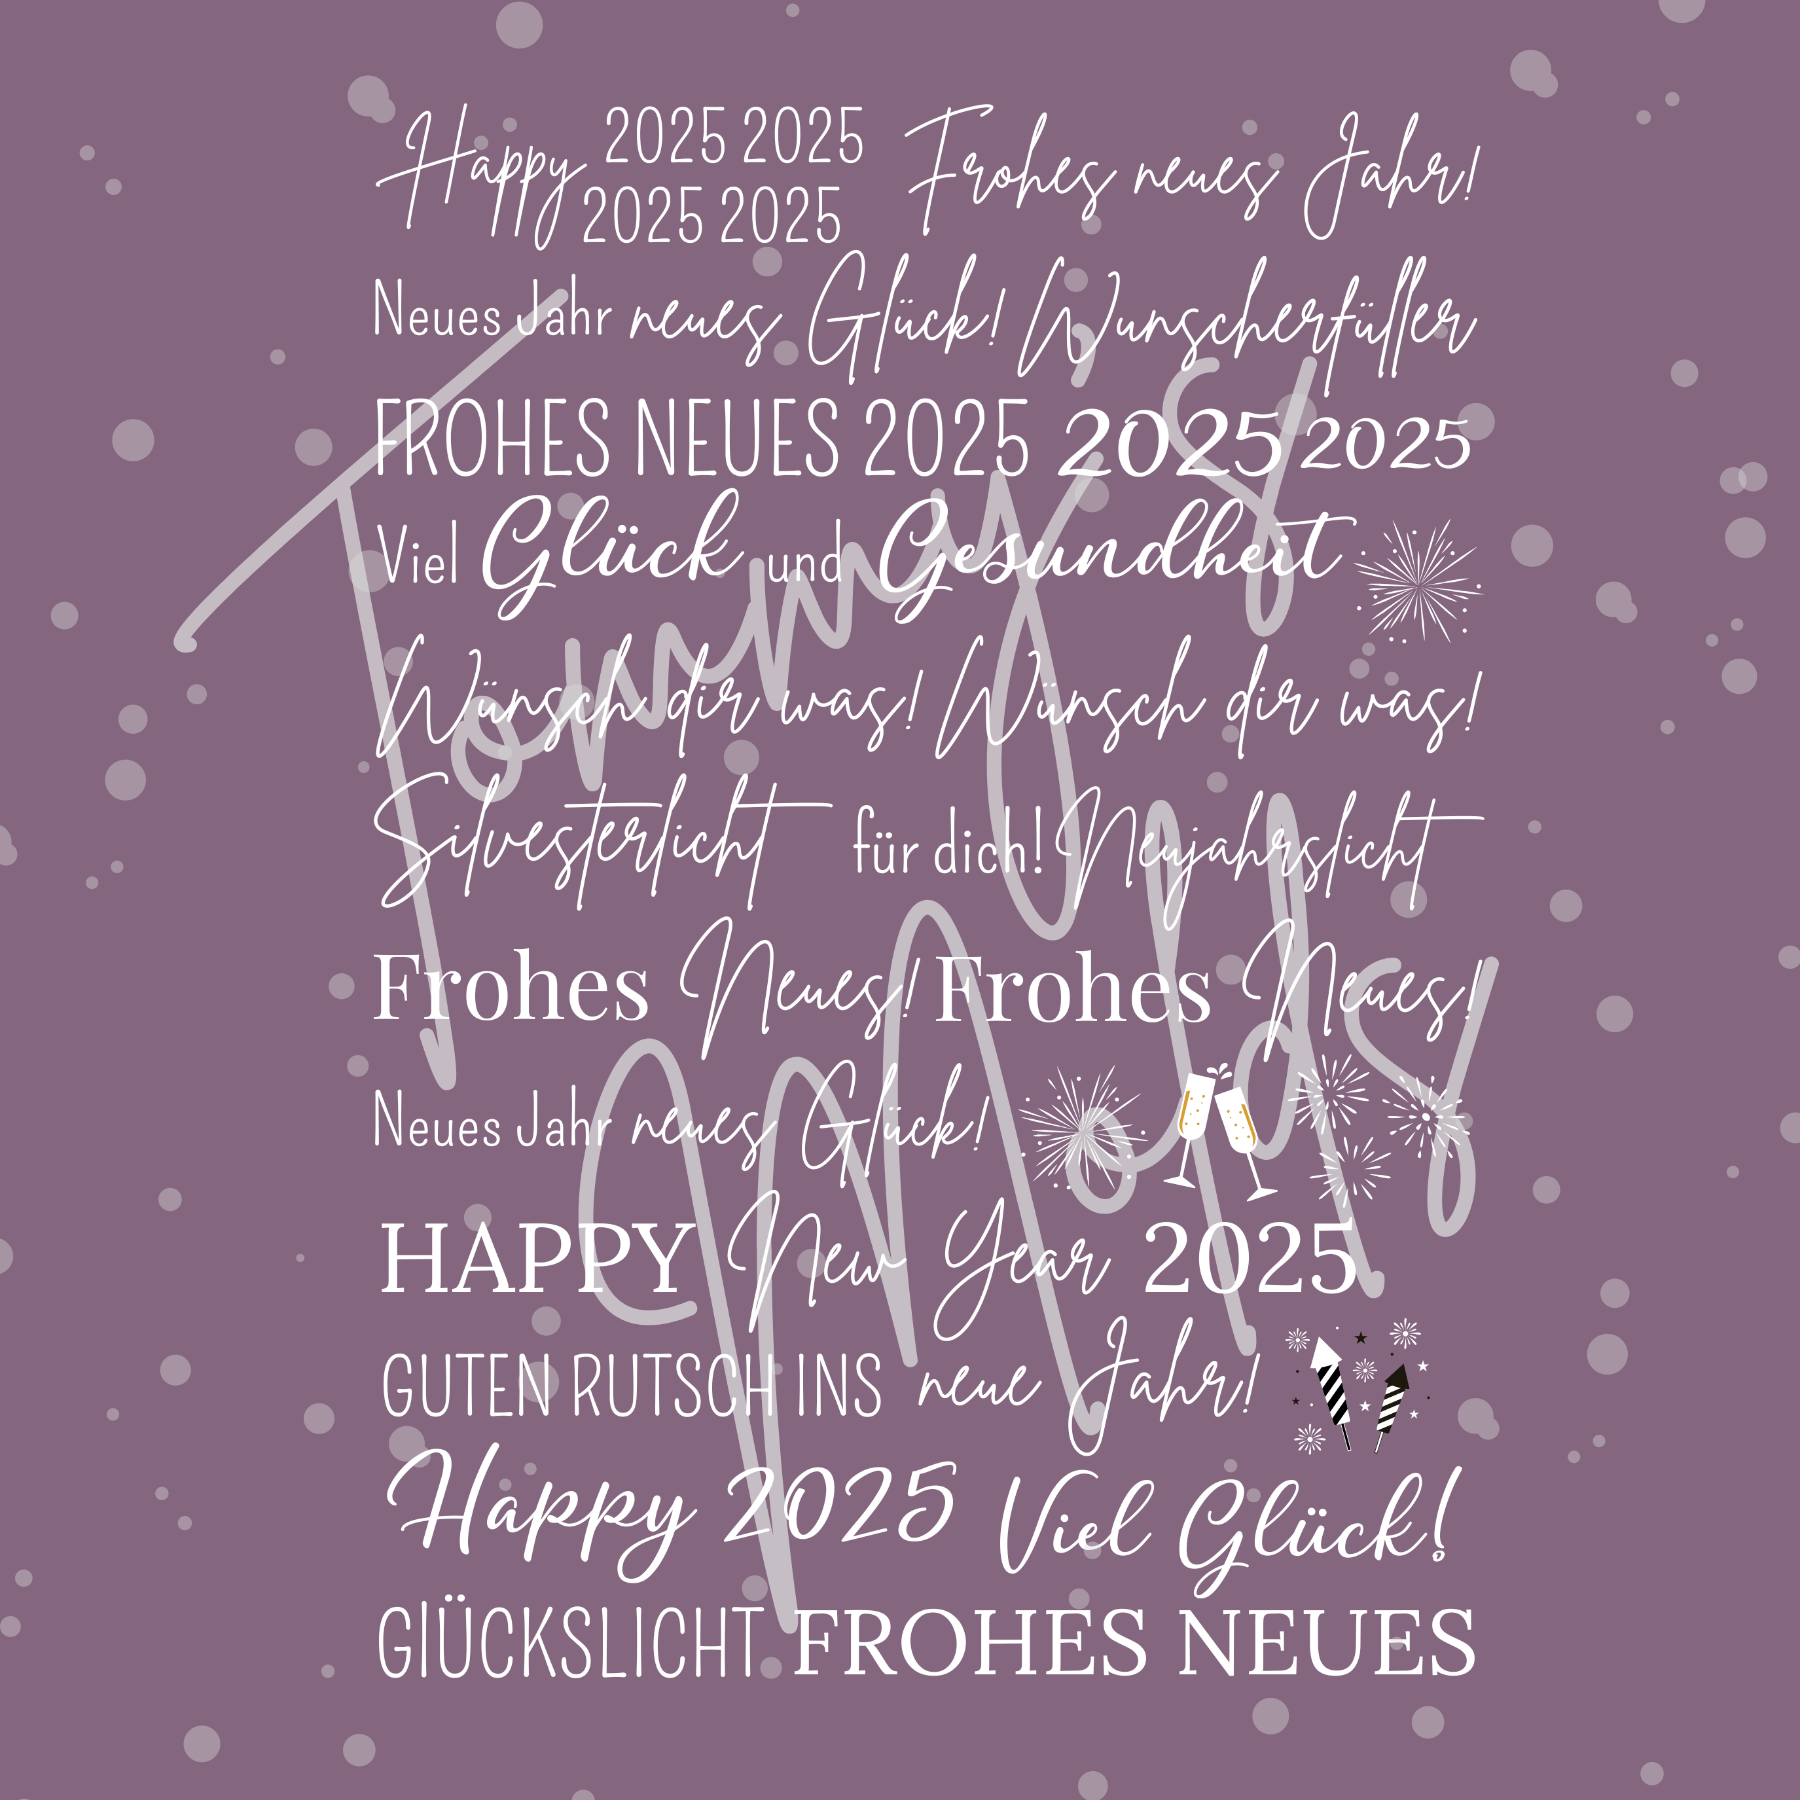 Happy 2025 2025 Frohes neues Jahr!
2025 2025
Neues Jahr neues Glück! Wunscherfüller
FROHES NEUES 2025 2025 2025
Viel Glück und Gesundheit
Wünsch dir was! Wünsch dir was!
Silvesterlicht für dich! Neujahrslicht
Frohes Neues! Frohes Neues!
Neues Jahr neues Glück!
HAPPY New Year 2025
GUTEN RUTSCH INS neue Jahr!
Happy 2025 Viel Glück!
GlÜCKSLICHT FROHES NEUES
Tommy's